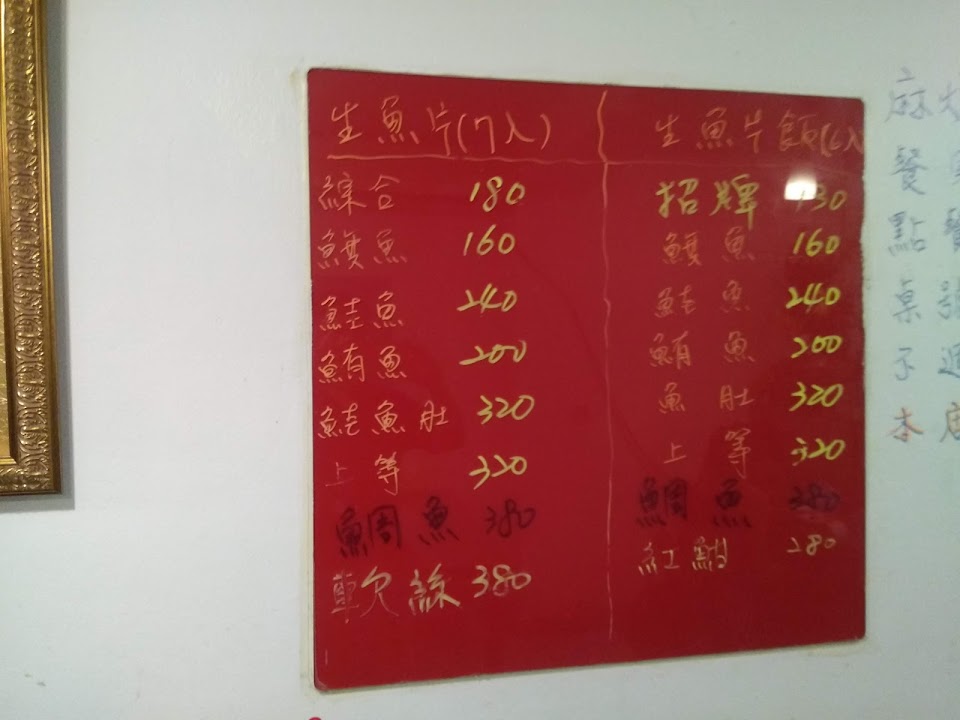 生魚片(7入)
綜合 180
鱰魚 160
鮭魚 240
鮪魚 200
鮭魚肚 320
上等 320
鯛魚 380
軟絲 380
生魚片飯(6入
招牌 130
鱰魚 160
鮭魚 240
鮪魚 200
魚肚 320
上等 320
鯛魚 280
紅魽 280
麻
餐
點
桌
子
本